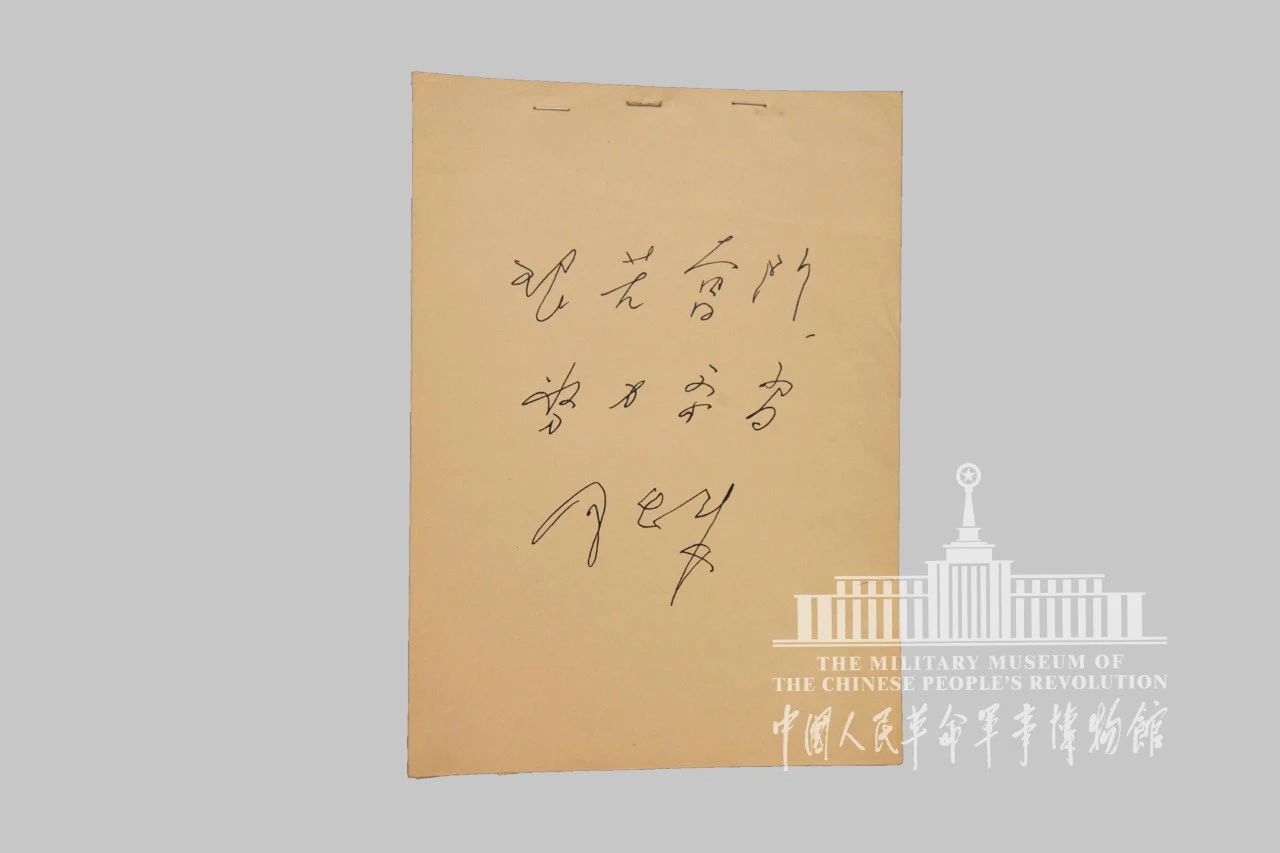 艰苦奮鬥,
努力学習
周
THE MILITARY MUSEUM OF
THE CHINESE PEOPLE'S REVOLUTION
中國人民革命軍事博物館